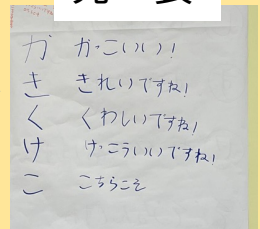 か かっこいい!
き きれいですね!
く くわしいですね!
け けっこういいですね!
こ こちらこそ